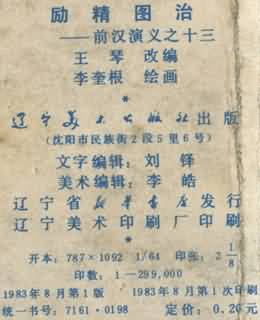 励精图治
——前汉演义之十三
王琴 改编
李奎根 绘画
*
辽宁美术出版社出版
(沈阳市民族街2段5里6号)
文字编辑：刘铎
美术编辑：李皓
辽宁省新华书店发行
辽宁美术印刷厂印刷
*
开本：787×1092 1/64 印张：2 1/8
印数：1—299,000
1983年8月第1版 1983年8月第1次印刷
统一书号：7161·0198 定价：0.20元